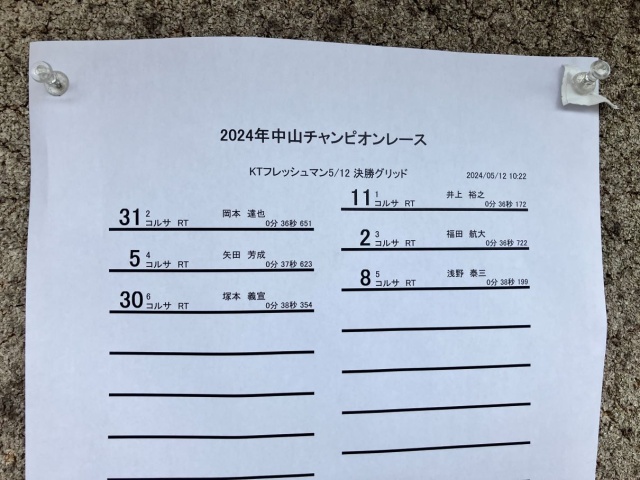 2024年中山チャンピオンレース
KTフレッシュマン5/12 決勝グリッド 2024/05/12 10:22
11 1 コルサ RT 井上 裕之 0分 36秒 172
31 2 コルサ RT 岡本 達也 0分 36秒 651
2 3 コルサ RT 福田 航大 0分 36秒 722
5 4 コルサ RT 矢田 芳成 0分 37秒 623
8 5 コルサ RT 浅野 泰三 0分 38秒 199
30 6 コルサ RT 塚本 義宣 0分 38秒 354